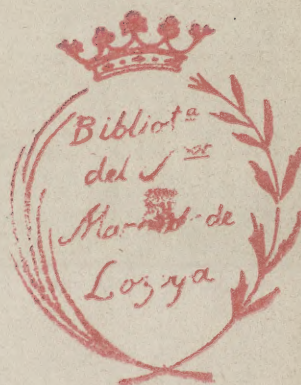 Bibliotª
del Sor
de
Lozoya